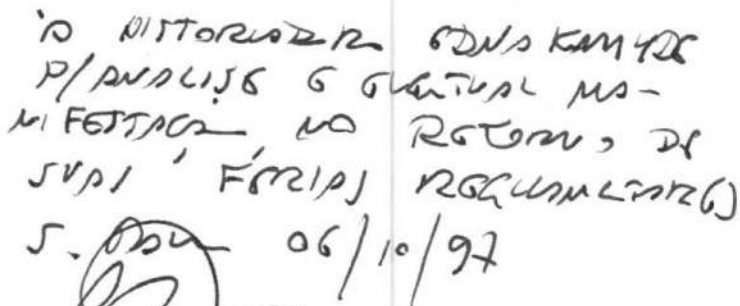 À HISTORIADORA EDNA KAMIDE
P/ ANÁLISE E EVENTUAL MA-
NIFESTAÇÃO, NO RETORNO DE
SUAS FÉRIAS REGULAMENTARES
S. 06/10/97